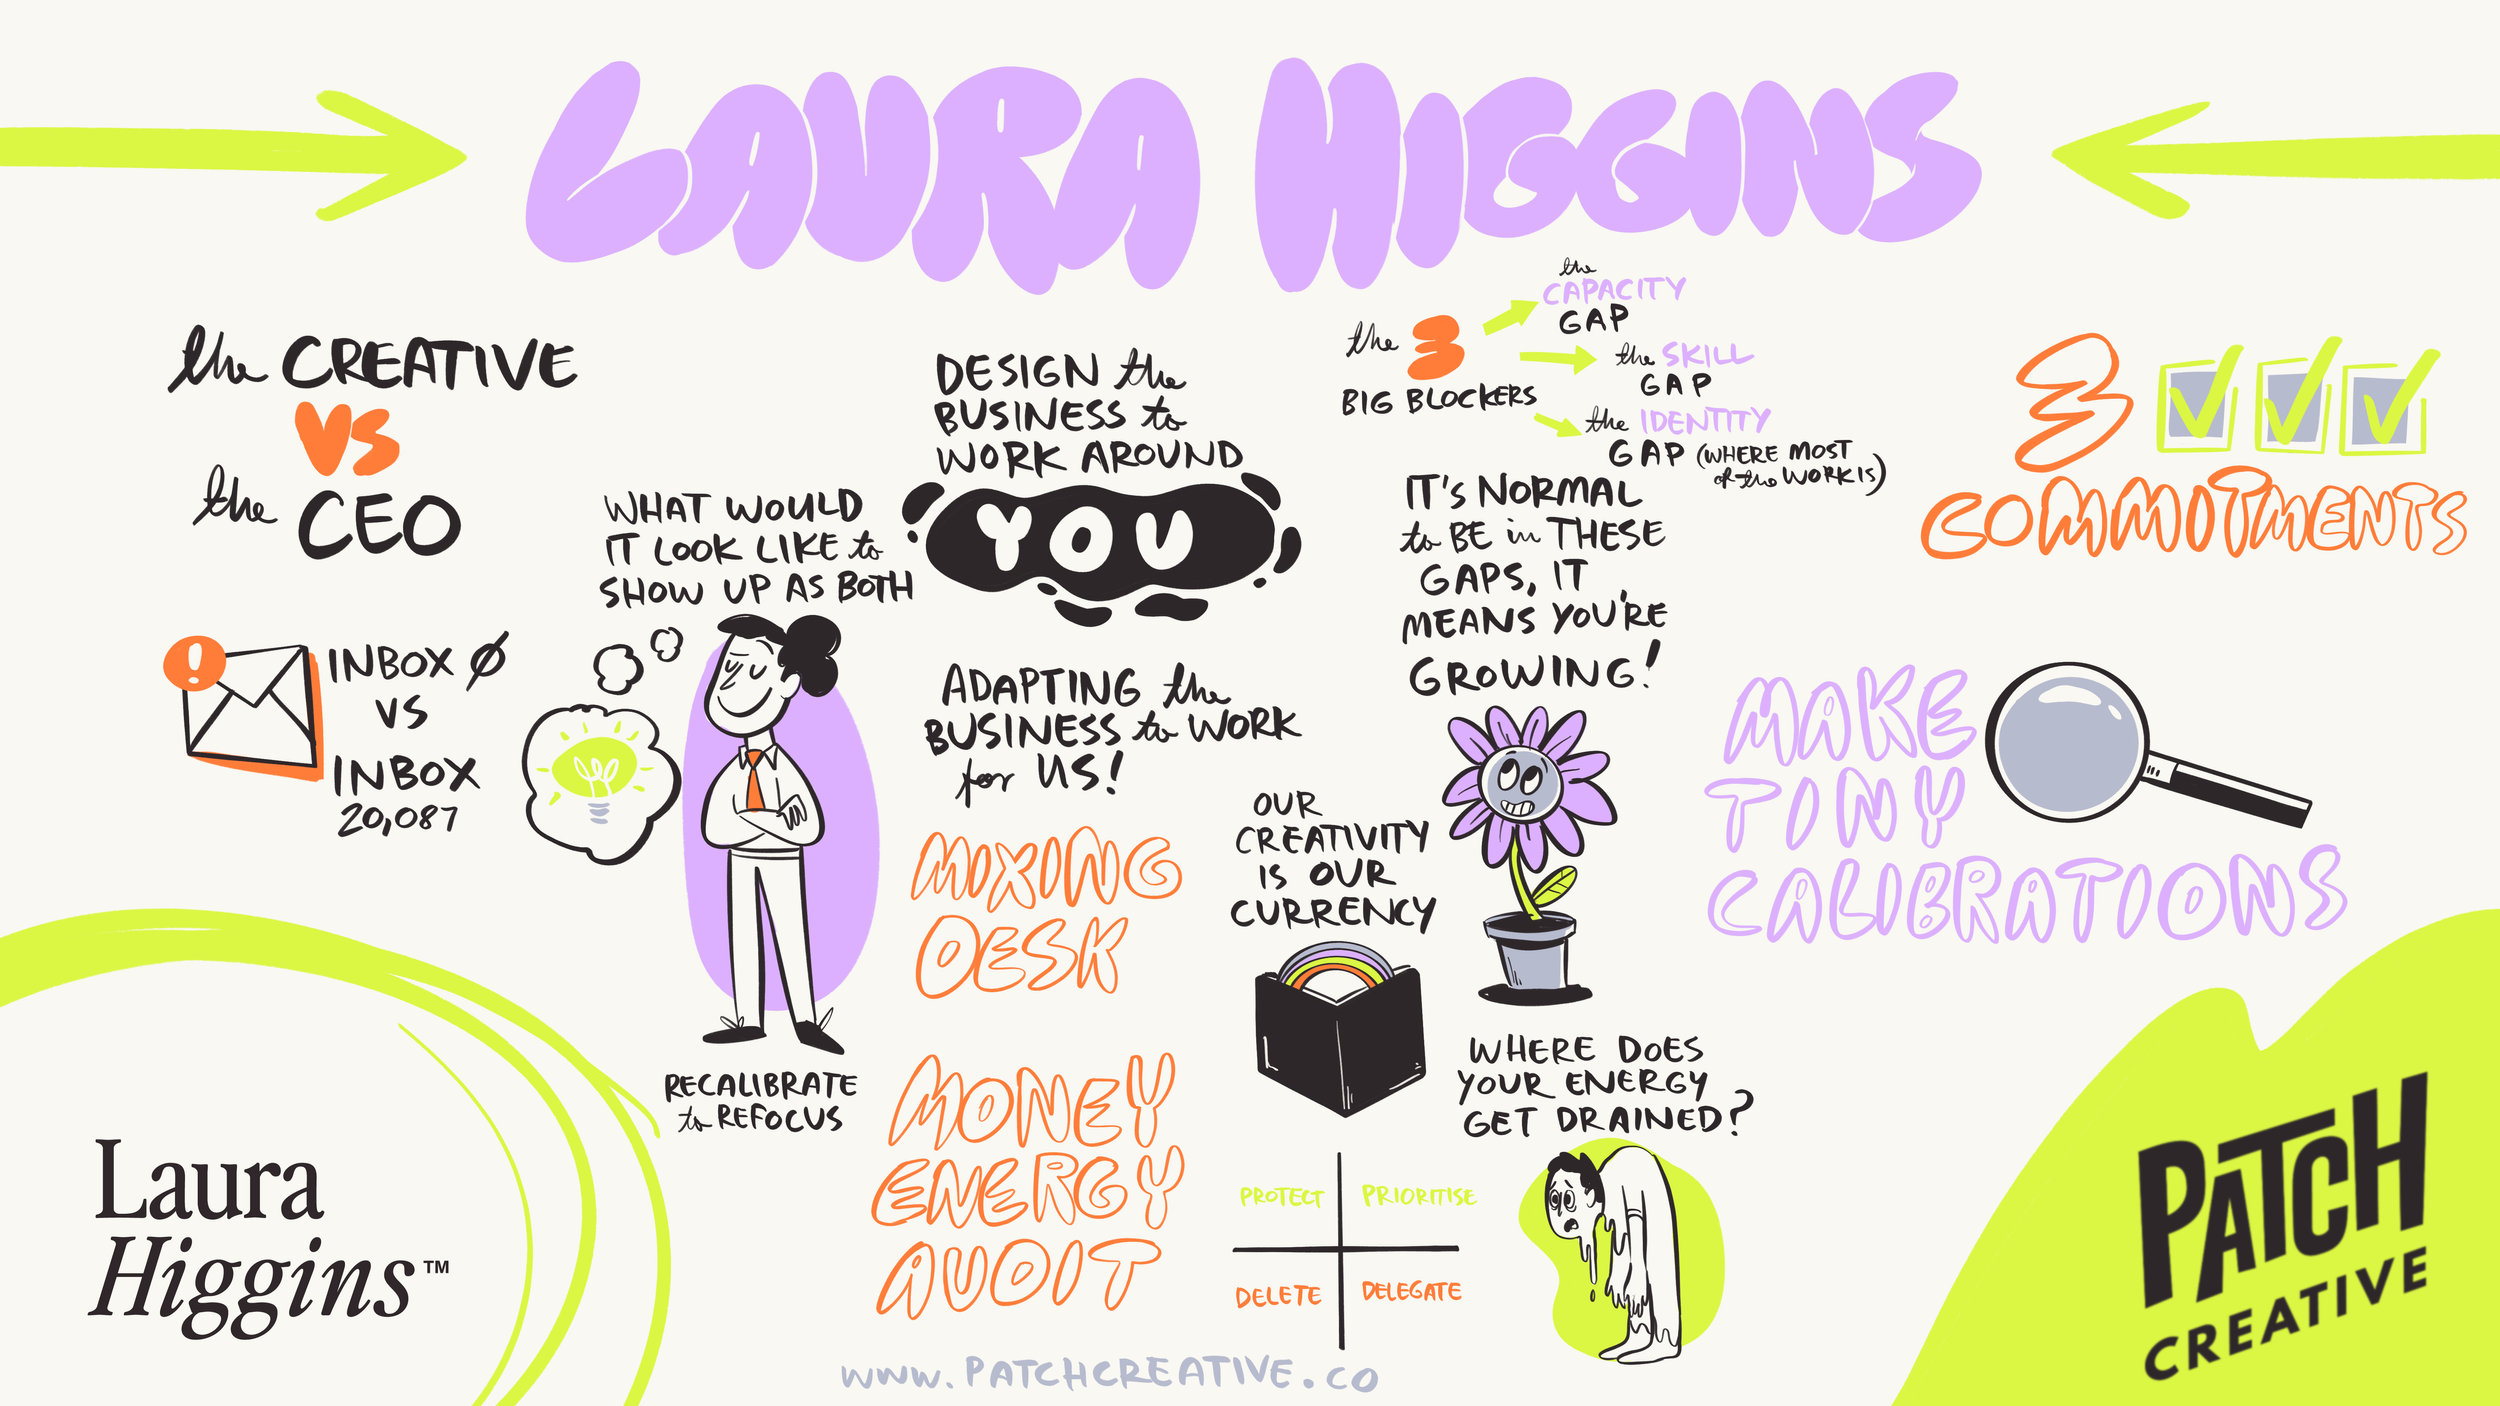 LAURA HIGGINS
the CREATIVE
VS
the CEO
INBOX Ø
VS
INBOX
20,087
WHAT WOULD
IT LOOK LIKE to
SHOW UP AS BOTH
RECALIBRATE
to REFOCUS
DESIGN the
BUSINESS to
WORK AROUND
YOU
ADAPTING the
BUSINESS to WORK
for US!
MIXING
DESK
MONEY
ENERGY
AUDIT
the 3
BIG BLOCKERS
the
CAPACITY
GAP
the SKILL
GAP
the IDENTITY
GAP (WHERE MOST
of the WORK IS)
IT'S NORMAL
to BE in THESE
GAPS, IT
MEANS YOU'RE
GROWING!
OUR
CREATIVITY
IS OUR
CURRENCY
WHERE DOES
YOUR ENERGY
GET DRAINED?
PROTECT PRIORITISE
DELETE DELEGATE
3
COMMITMENTS
MAKE
TINY
CALIBRATIONS
Laura
Higgins™
www.PATCHCREATIVE.CO
PATCH
CREATIVE